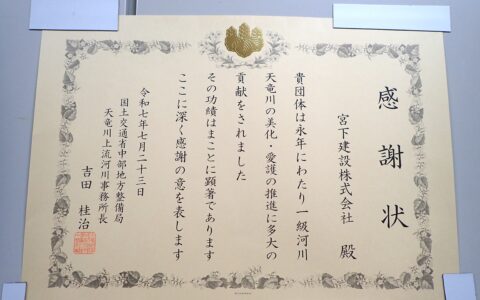 感謝状
宮下建設株式会社 殿
貴団体は永年にわたり一級河川
天竜川の美化・愛護の推進に多大の
貢献をされました
その功績はまことに顕著であります
ここに深く感謝の意を表します
令和七年七月二十三日
国土交通省中部地方整備局
天竜川上流河川事務所長
吉田 桂治